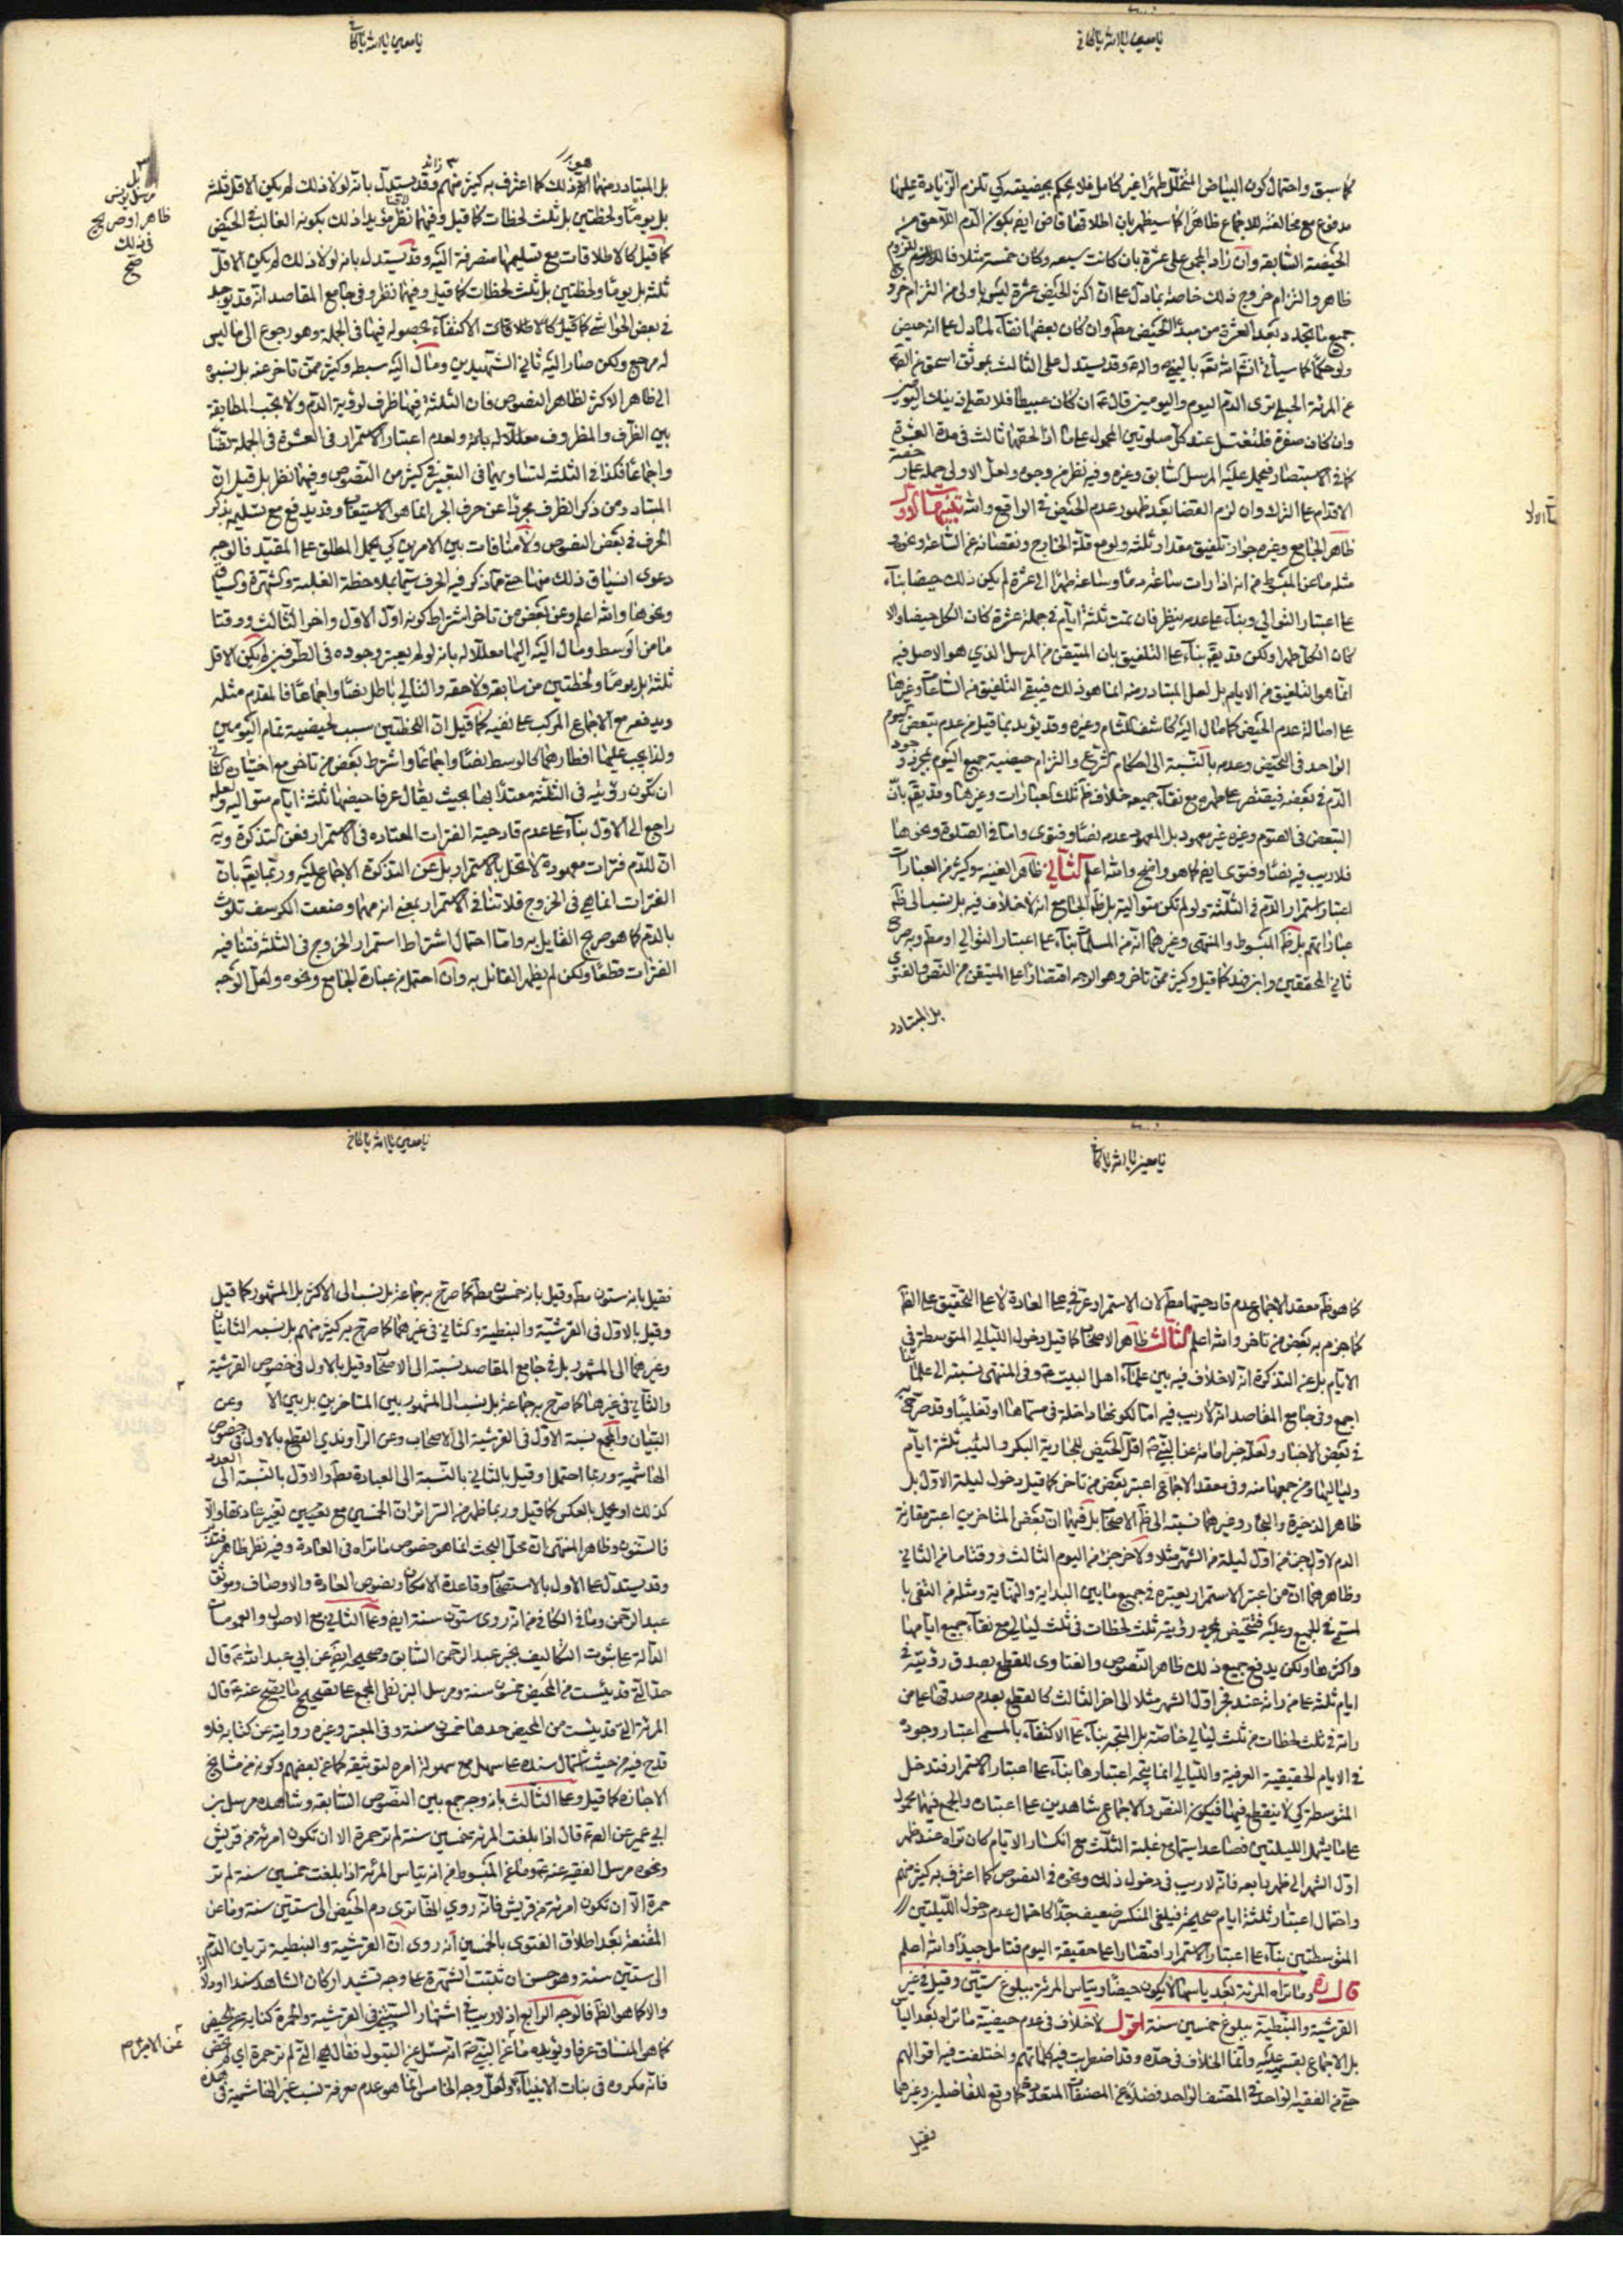 يا معين يا الله يا كافي
كما سبق واحتمال كون البياض المتخلل طهرا غير كامل فلا يحكم بحيضيته كي تلزم الزيادة عليها
مدفوع مع مخالفته للاجماع ظاهرا كما سيظهر بان اطلاقها قاض ايض بكون الدم اللاحق من
الحيضة السابقه وان زاد المجموع على عشرة بان كانت سبعه وكان خمسة مثلا
ظاهر والتزام خروج ذلك خاصة بما دل على ان اكثر الحيض عشرة ليس باولى من التزام خروج
جميع ما تجدد بعد العشرة من مبدأ الحيض مط وان كان بعضها نقاء لما دل على انه حيض
ولو حكما كما سياتي انش الله تع بالنبي واله وقد يستدل على الثالث بموثق اسحق عن الص
عن المرئة الحبلى ترى الدم اليوم واليومين قال ان كان عبيطا فلا تصلي ذينك اليومين
وان كان صفرة فلتغتسل عند كل صلوتين المحمول على ما اذا لحقهما ثالث في مدة العشرة
كما في الاستبصار فيحمل عليه المرسل السابق وغيره وفيه نظر من وجوه ولعل الاولى حمله على
الاقدام على الترك وان لزم القضا بعد ظهور عدم الحيض في الواقع والله تنبيهات الاول
ظاهر الجامع وغيره جواز تلفيق مقدار ثلثه ولو مع قلة الخارج ونقصانه عن الساعة ونحوه
مثله ما عن المبسوط من انه اذا رات ساعة دما وساعة طهرا الى عشرة لم يكن ذلك حيضا بناء
على اعتبار التوالي وبناء على عدمه ينظر فان تمت ثلثة ايام في جملة عشرة كان الكل حيضا والا
كان الكل طهرا ولكن قد يق بناء على التلفيق بان المتيقن من المرسل الذي هو الاصل فيه
انما هو التلفيق من الايام بل لعل المتبادر منه انما هو ذلك فيبقى التلفيق من الساعات وغيرها
على اصالة عدم الحيض كما مال اليه كاشف اللثام وغيره وقد يؤيد بما قيل من عدم تبعض اليوم
الواحد في التحيض وعدمه بالنسبة الى احكام الشرع والتزام حيضية جميع اليوم بمجرد وجود
الدم في بعضه فيقتصر على طهره مع نقاء جميعه خلاف ظ تلك العبارات وغيرها وقد يق بان
التبعض في الصوم وغيره غير معهود بل المعهود عدمه نصا وفتوى واما في الصلوة ونحوها
فلا ريب فيه نصا وفتوى ايض كما هو واضح والله اعلم الثاني ظاهر الغنيه وكثير من العبارات
اعتبار استمرار الدم في الثلثة ولو لم تكن متوالية بل ظ الجامع انه لا خلاف فيه بل نسب الى ظ
عباراتهم بل ظ المبسوط والمنتهى وغيرهما انه من المسلمات بناء على اعتبار التوالي او مط وبه صرح
ثاني المحققين وابن فهد كما قيل وكثير ممن تاخر وهو الوجه اقتصارا على المتيقن من النص والفتوى
بل المتبادر
يا معين يا الله يا كافي
بل المتبادر منهما الا ذلك كما اعترف به كثير منهم وقد يستدل بانه لولا ذلك لم يكن الاقل ثلثة
بل يوما ولحظتين بل ثلث لحظات كما قيل وفيهما نظر مؤيدا ذلك بكونه الغالب في الحيض
كما قيل كالاطلاقات مع تسليمها منصرفة اليه وقد يستدل بانه لولا ذلك لم يكن الاقل
ثلثة بل يوما ولحظتين بل ثلث لحظات كما قيل وفيهما نظر وفي جامع المقاصد انه قد يوجد
في بعض الحواشي كما قيل كالاطلاقات الاكتفاء بحصوله فيها في الجملة وهو رجوع الى ما ليس
له مرجع ولكن صار اليه ثاني الشهيدين ومال اليه سبطه وكثير ممن تاخر عنه بل نسبوه
الى ظاهر الاكثر لظاهر النصوص فان الثلثة فيها ظرف لرؤية الدم ولا يجب المطابقة
بين الظرف والمظروف معللا له بانه ولعدم اعتبار الاستمرار في العشرة في الجملة نصا
واجماعا فكذا في الثلثة لتساويهما في التعبير في كثير من النصوص وفيهما نظر بل قيل ان
المتبادر من ذكر الظرف مجردا عن حرف الجر انما هو الاستيعاب وقد يدفع مع تسليمه بذكر
الحرف في بعض النصوص ولا منافات بين الامرين كي يحمل المطلق على المقيد فالوجه
دعوى انسياق ذلك منها حتى مما ذكر فيه الحرف سيما بملاحظة الغلبة والشهرة والسياق
ونحوها والله اعلم وعن بعض من تاخر اشتراط كونه اول الاول واخر الثالث ووقتا
ما من الوسط ومال اليه البهائي معللا له بانه لو لم يعتبر وجوده في الطرفين لم يكن الاقل
ثلثة بل يوما ولحظتين من سابقه ولاحقه والتالي باطل نصا واجماعا فالمقدم مثله
ويدفعه مع الاجماع المركب على نفيه كما قيل ان اللحظتين سبب لحيضية تمام اليومين
ولذا يجب عليها افطارهما كالوسط نصا واجماعا واشترط بعض من تاخر مع اختيار الثاني
ان تكون رؤيته في الثلثة معتدا بها بحيث يقال عرفا حيضها ثلثة ايام متواليه ولعله
راجع الى الاول بناء على عدم قادحية الفترات المعتاده في الاستمرار فعن التذكرة وية
ان للدم فترات معهودة لا تخل بالاستمرار بل عن التذكرة الاجماع عليه وربما يق بان
الفترات انما هي في الخروج فلا تنافي الاستمرار بمعنى انه مهما وضعت الكرسف تلوث
بالدم كما هو صريح القايل به واما احتمال اشتراط استمرار الخروج في الثلثة فتنافيه
الفترات قطعا ولكن لم يظهر القائل به وان احتمل من عبارة الجامع ونحوه ولعل الوجه
هو
٣ زائد
ظاهرا وصريح
في ذلك
صح
يا معين يا الله يا كافي
كما هو ظ معقد الاجماع عدم قادحيتها مط لان الاستمرار عرفي على العادة لا على التحقيق على الظ
كما جزم به بعض من تاخر والله اعلم الثالث ظاهر الاصحاب كما قيل دخول الليالي المتوسطة في
الايام بل عن التذكرة انه لا خلاف فيه بين علماء اهل البيت ع وفي المنتهى نسبته الى علمائنا
اجمع وفي جامع المقاصد انه لا ريب فيه اما لكونها داخلة في مسماها او تغليبا وقد صرح به
في بعض الاخبار ولعله خبر امامة عن النبي ص اقل الحيض للجارية البكر والثيب ثلثة ايام
ولياليها ومن جمعها منه وفي معقد الاجماع اعتبر بعض من تاخر كما قيل دخول ليلة الاول بل
ظاهر الذخيرة والبحار وغيرهما نسبته الى ظ الاصحاب بل فيهما ان بعض المتاخرين اعتبر مقارنة
الدم لاول جزء من اول ليلة من الشهر مثلا ولاخر جزء من اليوم الثالث ووقتا ما من الثاني
وظاهرهما ان من اعتبر الاستمرار يعتبره في جميع ما بين البداية والنهاية ومثله من اكتفى با
لمسمى في الجميع وعليه فتتحيض بمجرد رؤيته ثلث لحظات في ثلث ليالي مع نقاء جميع ايامها
واكثرها ولكن يدفع جميع ذلك ظاهر النصوص والفتاوى للقطع بصدق رؤيته في
ايام ثلثة على من راته عند فجر اول الشهر مثلا الى اخر الثالث كالقطع بعدم صدقها على من
راته في ثلث لحظات من ثلث ليالي خاصة بل المتجه بناء على الاكتفاء بالمسمى اعتبار وجوده
في الايام الحقيقية العرفية والليالي انما يتجه اعتبارها بناء على اعتبار الاستمرار فتدخل
المتوسطة كي لا ينقطع فيها فيكون النص والاجماع شاهدين على اعتباره والجمع فيهما محمول
على ما يشمل الليلتين فصاعدا سيما مع غلبة الثلث مع انكسار الايام كان تراه عند ظهر
اول الشهر الى ظهر رابعه فانه لا ريب في دخول ذلك ونحوه في النصوص كما اعترف به كثير منهم
واحتمال اعتبار ثلثة ايام صحيحة فيلغى المنكسر ضعيف جدا كاحتمال عدم دخول الليلتين
المتوسطتين بناء على اعتبار الاستمرار اقتصارا على حقيقة اليوم فتامل جيدا والله اعلم
قال ره وما تراه المرئة بعد ياسها لا يكون حيضا وتياس المرئة ببلوغ ستين وقيل في غير
القرشية والنبطية ببلوغ خمسين سنة اقول لا خلاف في عدم حيضية ما تراه بعد الياس
بل الاجماع بقسميه عليه وانما الخلاف في حده وقد اضطربت فيه كلماتهم واختلفت فيه اقوالهم
حتى من الفقيه الواحد في المصنف الواحد فضلا عن المصنفات المتعددة كما وقع للفاضلين وغيرهما
فقيل
يا معين يا الله يا كافي
فقيل بانه ستون مط وقيل بانه خمسون مط كما صرح به جماعة بل نسب الى الاكثر بل المشهور كما قيل
وقيل بالاول في القرشية والنبطية وبالثاني في غيرهما كما صرح به كثير منهم بل نسبه الثانيان
وغيرهما الى المشهور بل في جامع المقاصد نسبته الى الاصحاب وقيل بالاول في خصوص القرشية
والثاني في غيرها كما صرح به جماعة بل نسب الى المشهور بين المتاخرين بل بين الا وعن
التبيان والمجمع نسبة الاول في القرشية الى الاصحاب وعن الراوندي القطع بالاول في خصوص
الهاشمية وربما احتمل او قيل بالثاني بالنسبة الى العبادة مط والاول بالنسبة الى العدد
كذلك او يحمل بالعكس كما قيل وربما ظهر من السرائر ان الخمسين مع تعيين تغير عادتها والا
فالستون وظاهر المنتهى ان محل البحث انما هو خصوص ما تراه في العادة وفيه نظر ظاهر فتدبر
وقد يستدل على الاول بالاستصحاب وقاعدة الامكان ونصوص العادة والاوصاف وموثق
عبد الرحمن وما في الكافي من انه روي ستون سنة ايض وعلى الثاني مع الاصول والعمومات
الدالة على ثبوت التكاليف بخبر عبد الرحمن السابق وصحيحه ايض عن ابي عبد الله ع قال
حد التي قد يئست من المحيض خمسون سنة ومرسل البزنطي المجمع على تصحيح ما يصح عنه ع قال
المرئة التي قد يئست من المحيض حدها خمسون سنة وفي المعتبر وغيره روايته عن كتابه فلا
قدح فيه من حيث اشتمال سنده على سهل مع سهولة امره لتوثيقه كما عن بعضهم وكونه من مشايخ
الاجازه كما قيل وعلى الثالث بانه وجه جمع بين النصوص السابقه وشاهده مرسل بن
ابي عمير عن الص ع قال اذا بلغت المرئة خمسين سنة لم تر حمرة الا ان تكون امرئة من قريش
ونحوه مرسل الفقيه عنه ع وما عن المبسوط من انه تياس المرئة اذا بلغت خمسين سنة لم تر
حمرة الا ان تكون امرئة من قريش فانه روي انها ترى دم الحيض الى ستين سنة وما عن
المقنعة بعد اطلاق الفتوى بالخمسين انه روي ان القرشية والنبطية تريان الدم
الى ستين سنة وهو حسن ان ثبتت الشهرة على وجه تشيد اركان الشاهد سندا او دلالة
والا كما هو الظ فالوجه الرابع اذ لا ريب في اشتهار الستين في القرشية والحمرة كناية عن الحيض
كما هو المنساق عرفا ويؤيده ما عن النبي ص انه سئل عن البتول فقال هي التي لم تر حمرة اي لم تحض
فانه مكروه في بنات الانبياء ولعل وجه الخامس انما هو عدم معرفة نسب غير الهاشمية في هذه